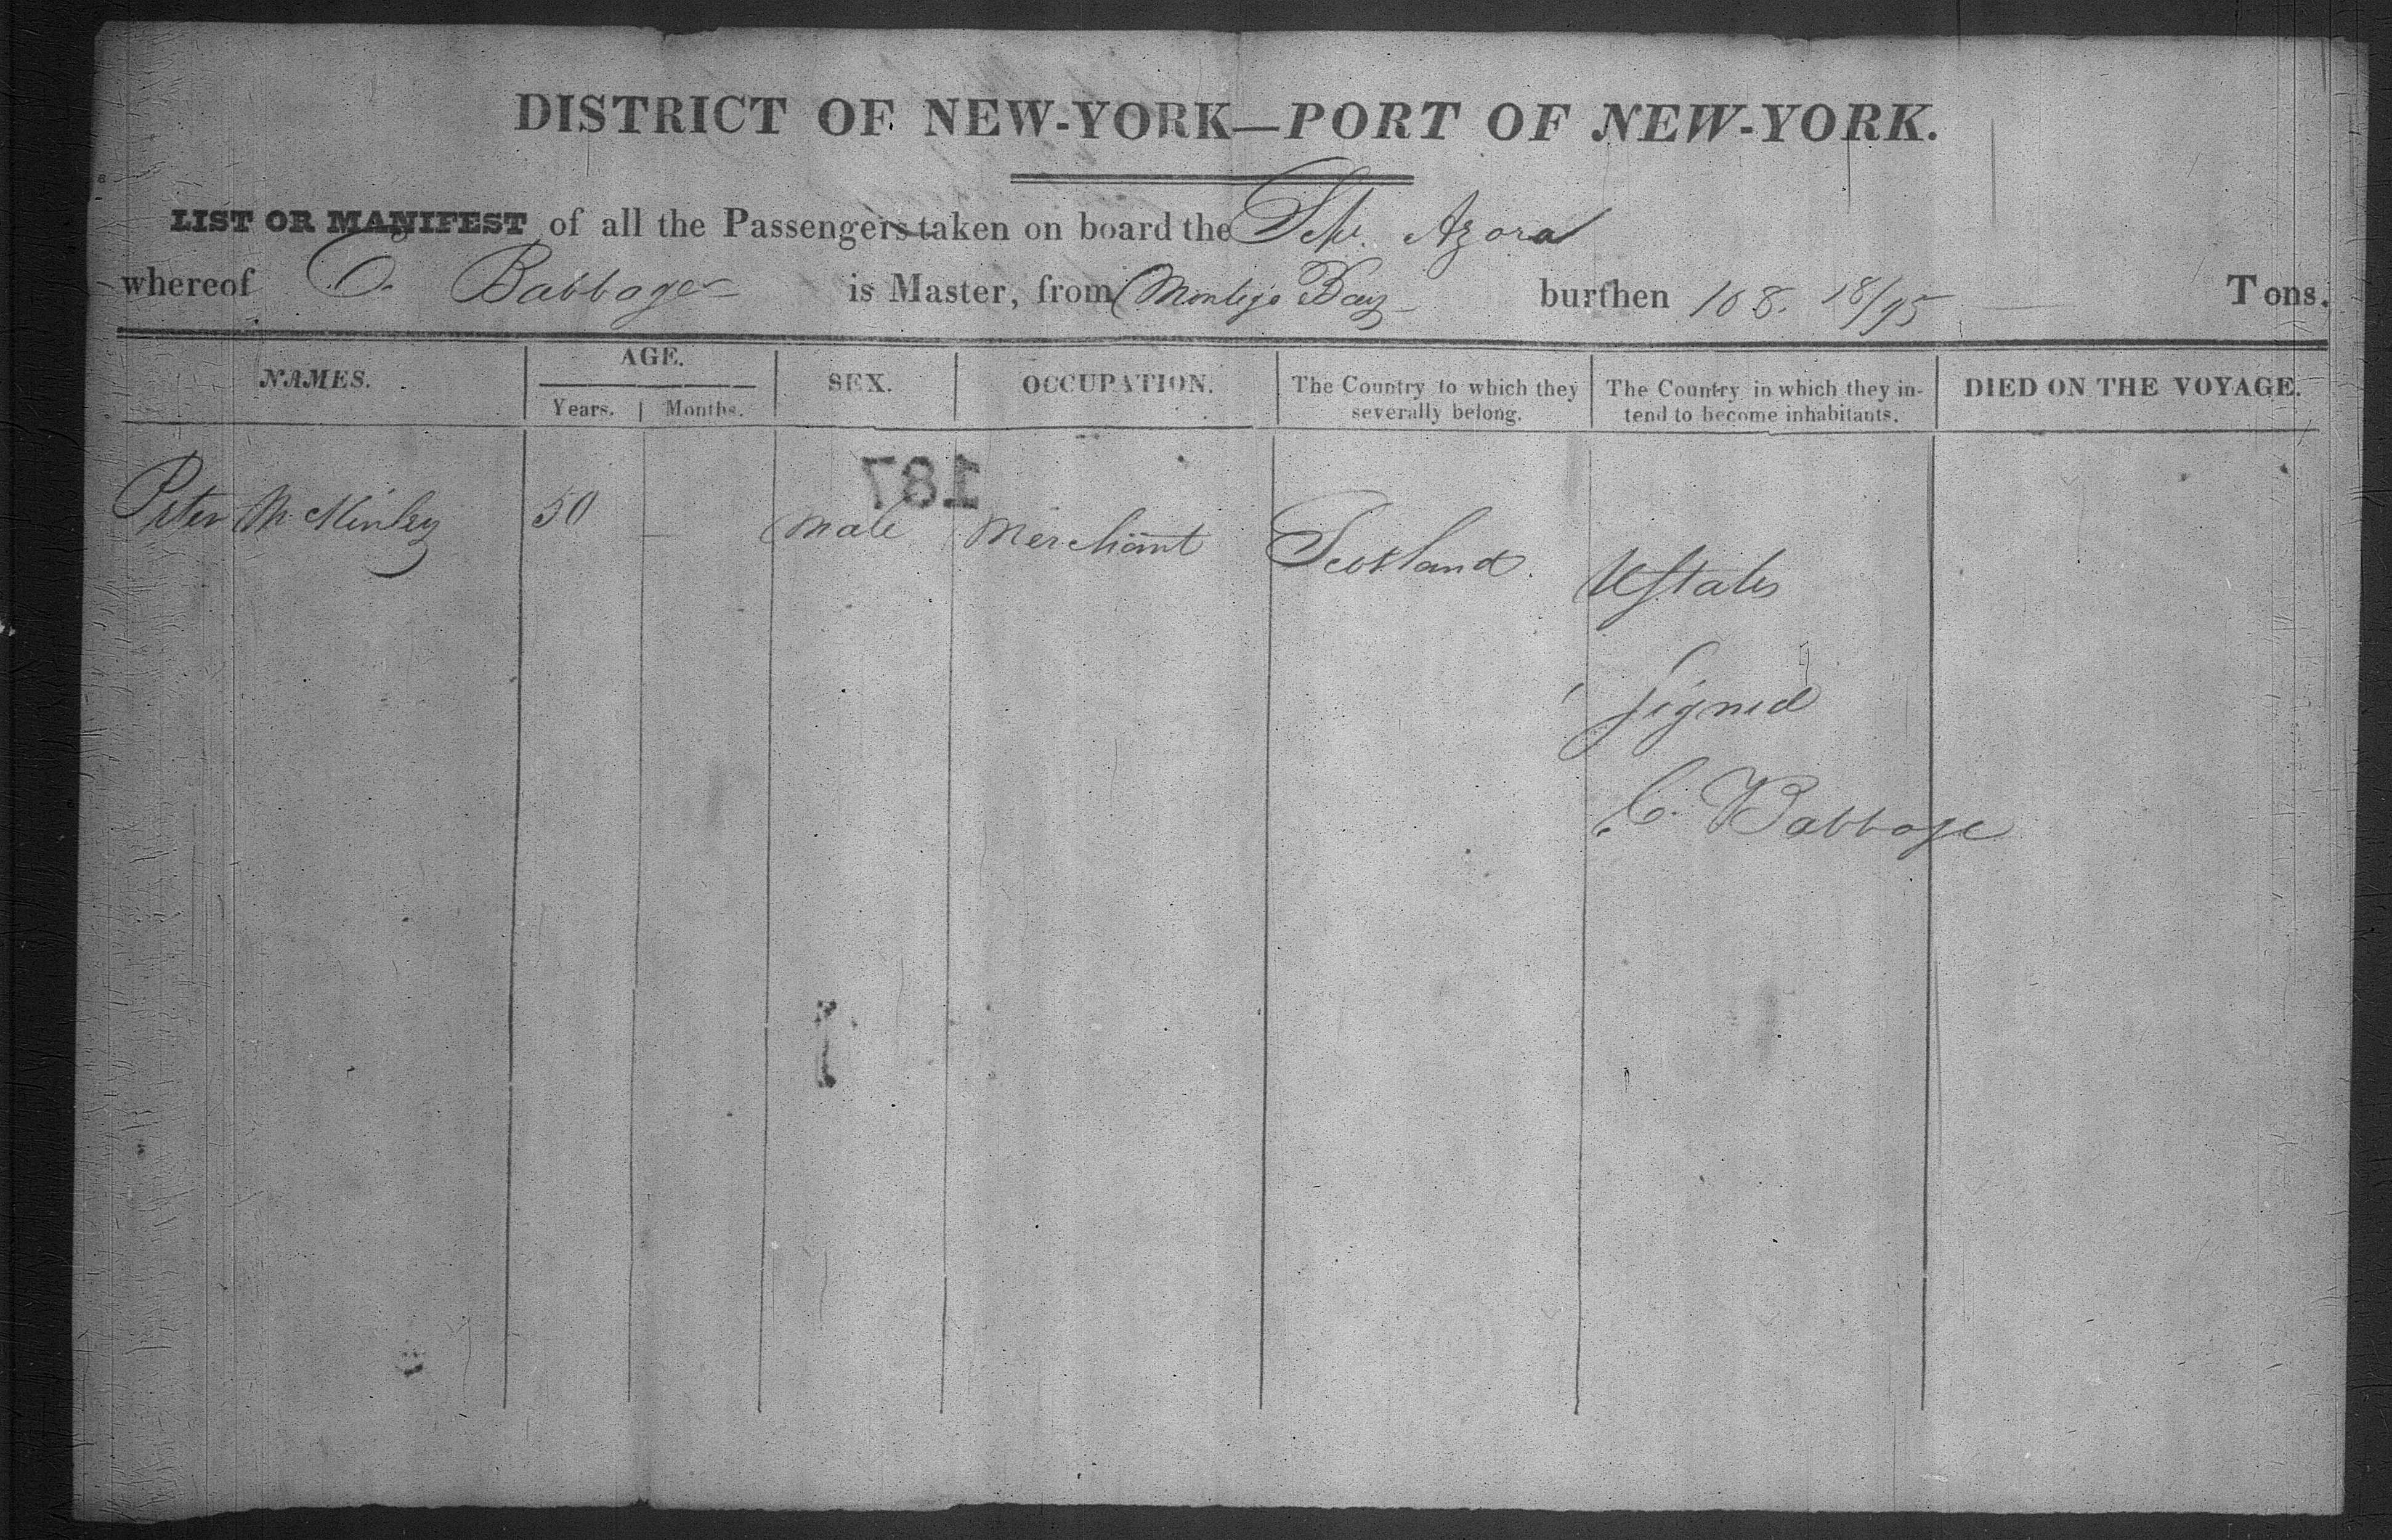 DISTRICT OF NEW-YORK—PORT OF NEW-YORK.
LIST OR MANIFEST of all the Passengers taken on board the Schr. Azora
whereof C. Babbage is Master, from Montego Bay burthen 108. 18/95 Tons.
NAMES. AGE. Years. Months. SEX. OCCUPATION. The Country to which they severally belong. The Country in which they intend to become inhabitants. DIED ON THE VOYAGE.
187
Peter McKinley 50 — male Merchant Scotland. UStates
Signed
C. Babbage
1